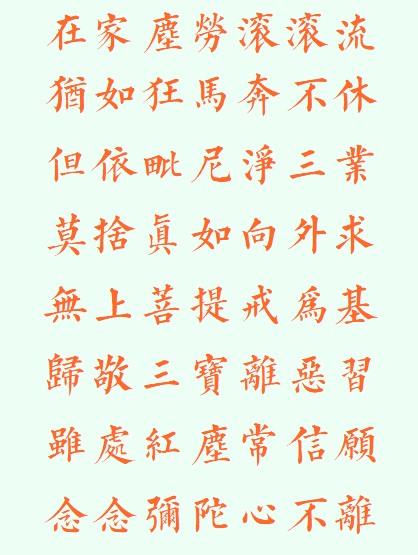 在家塵勞滾滾流
猶如狂馬奔不休
但依毗尼淨三業
莫捨眞如向外求
無上菩提戒爲基
歸敬三寶離惡習
雖處紅塵常信願
念念彌陀心不離